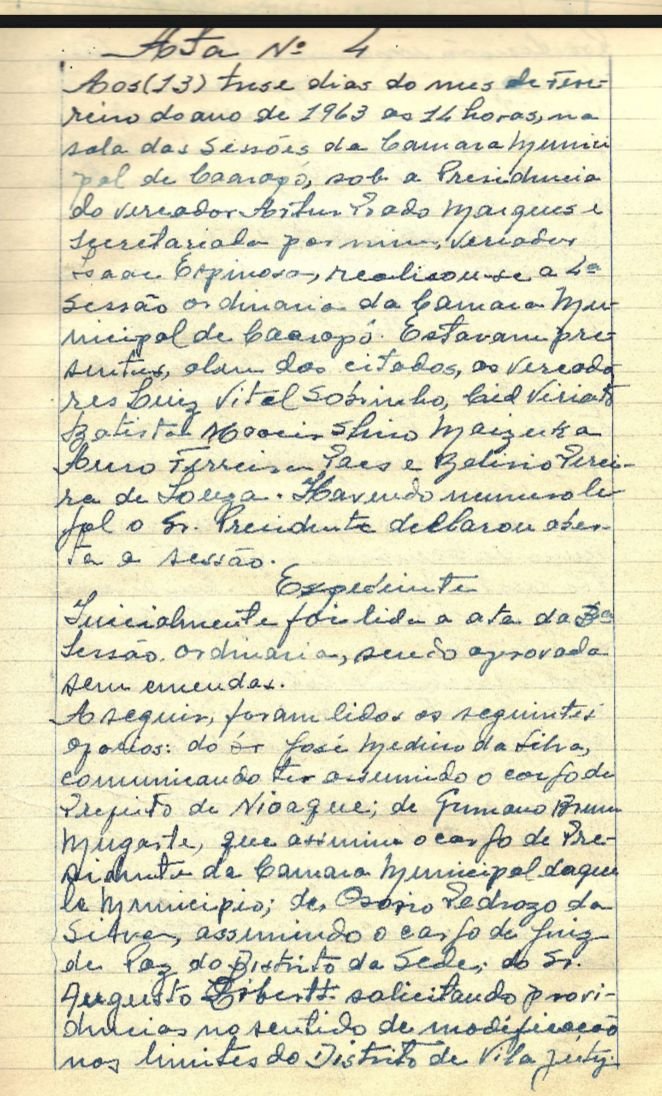 Ata Nº 4
Aos (13) trese dias do mes de Feve-
reiro do ano de 1963 as 14 horas, na
sala das Sessões da Camara Munici
pal de Caarapó, sob a Presidencia
do vereador Artur Prado Marques e
secretariada por mim, vereador
Isaac Espinosa, realisou-se a 4ª
sessão ordinaria da Camara Mu-
nicipal de Caarapó. Estavam pre-
sentes, alem dos citados, os vereado
res Luiz Vital Sobrinho, Cid Viriato
Batista Shiro
Ferreira Paes e Belisio Perei-
ra de Souza. Havendo numero le-
gal o Sr. Presidente declarou aber-
ta a sessão.
Expediente
Inicialmente foi lida a ata da 3ª
Sessão ordinaria, sendo aprovada
sem emendas.
A seguir, foram lidos os seguintes
oficios: do sr José Medino da Silva,
comunicando ter assumido o cargo de
Prefeito de Nioaque; de
que assumiu o cargo de Pre-
sidente da Camara Municipal daque
le Municipio; de Osorio Pedrozo da
Silva, assumindo o cargo de Juiz
de Paz do Distrito da Sede; do Sr.
Augusto solicitando provi-
dencias no sentido de modificação
nos limites do Distrito de Vila Juty.